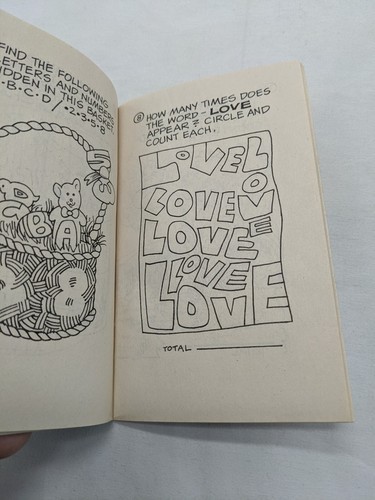 FIND THE FOLLOWING
ETTERS AND NUMBERS
IDDEN IN THIS BASKET
·B·C·D/·2·3·5·8
CBA
8
⑧ HOW MANY TIMES DOES
THE WORD - LOVE
APPEAR? CIRCLE AND
COUNT EACH.
LOVE
LOVE
LOVE
LOVE
LOVE
LOVE
TOTAL